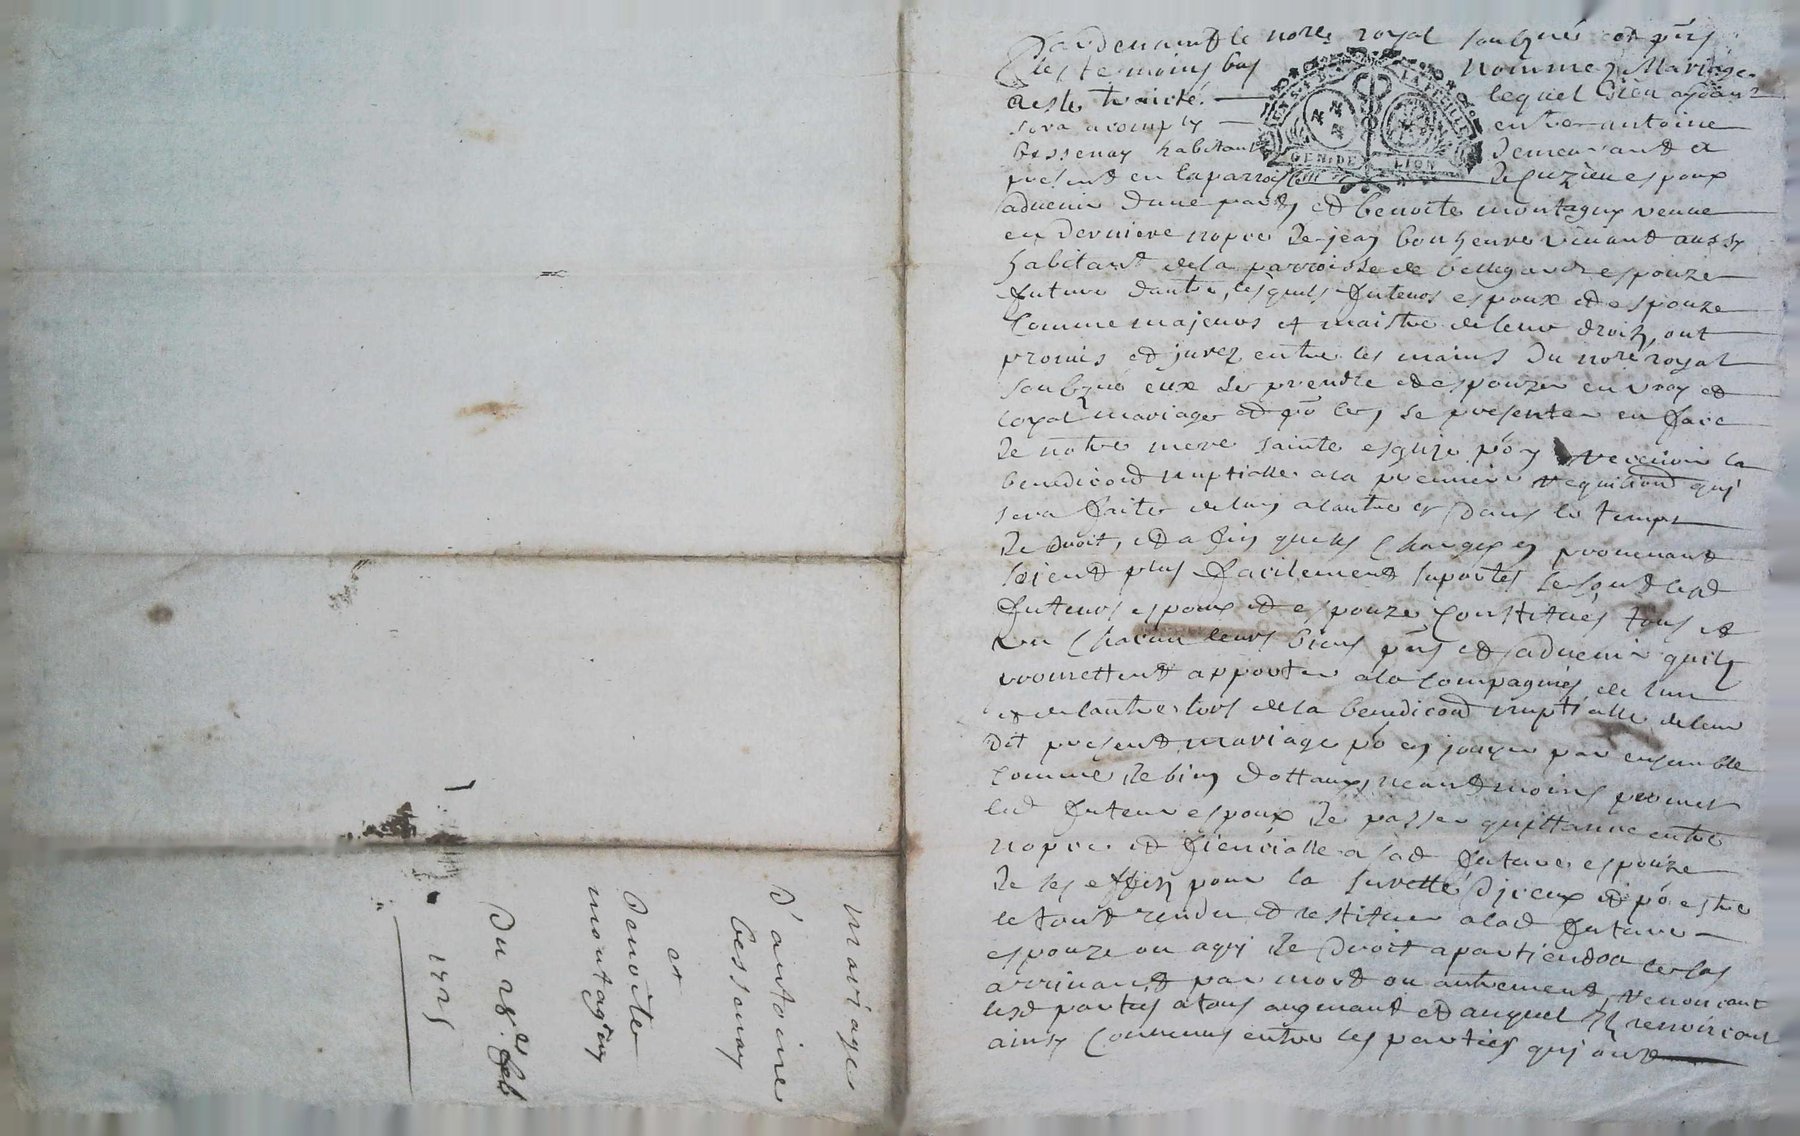 Pardevant le nore royal soubzné et pns
les temoins bas nommez Mariage
a esté traicté. lequel Dieu aydant
sera acomply entre antoine
bessenay habitant demeurant et
present en la parroisse de Cuzieu espoux
advenir dune part, et benoite montagny veuve
en derniere nopce de jean bonheure vivant aussy
habitant de la parroisse de bellegarde espouze
future dautre, lesquels futeurs espoux et espouze
Comme majeurs et maistre de leur droitz, ont
promis et jurez entre les mains du nore royal
soubzné eux se prendre et espouzer en vray et
loyal mariage et po ce, se presenter en face
de notre mere sainte esglize po y recevoir la
benediction nuptialle a la premiere requisition quy
sera faite de lun a lautre et dans le temps
de droit, et a fin que les Charges en provenant
soient plus facilement suportés se sont lesd
futeurs espoux et espouze Constitués tous et
un Chacun leurs biens pns et advenir quilz
promettent apporter a la Compagnie de lun
et de lautre lors de la benediction nuptialle de leur
dit present mariage po en jouyr par ensemble
comme de bien dottaux, neantmoins promet
led futeur espoux de passer quittance entre
nopce et fiencialle a lad future espouze
de ses effetz pour la surette diceux et po estre
le tout rendu et restituer a lad future
espouze ou a qui de droit apartiendra le cas
arrivant par mort ou autrement, renoncant
lesd parties a tous augment et auquel Ilz renoncent
ainsy Convenus entre les parties qui ont
mariage
d'antoine
bessenay
et
benoite
montagny
Du 28.e feb
1725
GEN. DE LION